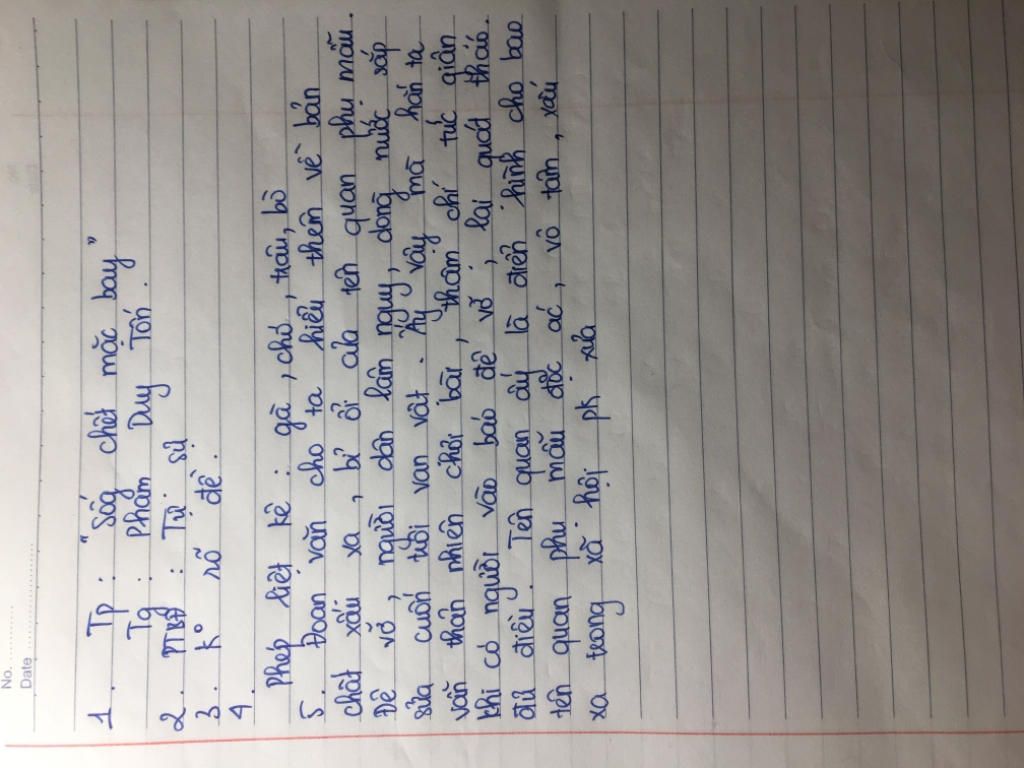 No. ............
Date ............
1. Tp : "Sống chết mặc bay"
Tg : Phạm Duy Tốn.
2. PTBĐ : Tự sự
3. Kº rõ đề.
4.
Phép liệt kê : gà, chó, trâu, bò
5. Đoạn văn cho ta hiểu thêm về bản
chất xấu xa, bỉ ổi của tên quan phụ mẫu.
Đê vỡ, người dân lâm nguy, dòng nước sắp
sửa cuốn trôi vạn vật. Ấy vậy mà hắn ta
vẫn thản nhiên chơi bài, thậm chí tức giận
khi có người vào báo đê vỡ, lại quát tháo
đủ điều. Tên quan ấy là điển hình cho bao
tên quan phụ mẫu độc ác, vô tâm, xấu
xa trong xã hội pk xưa